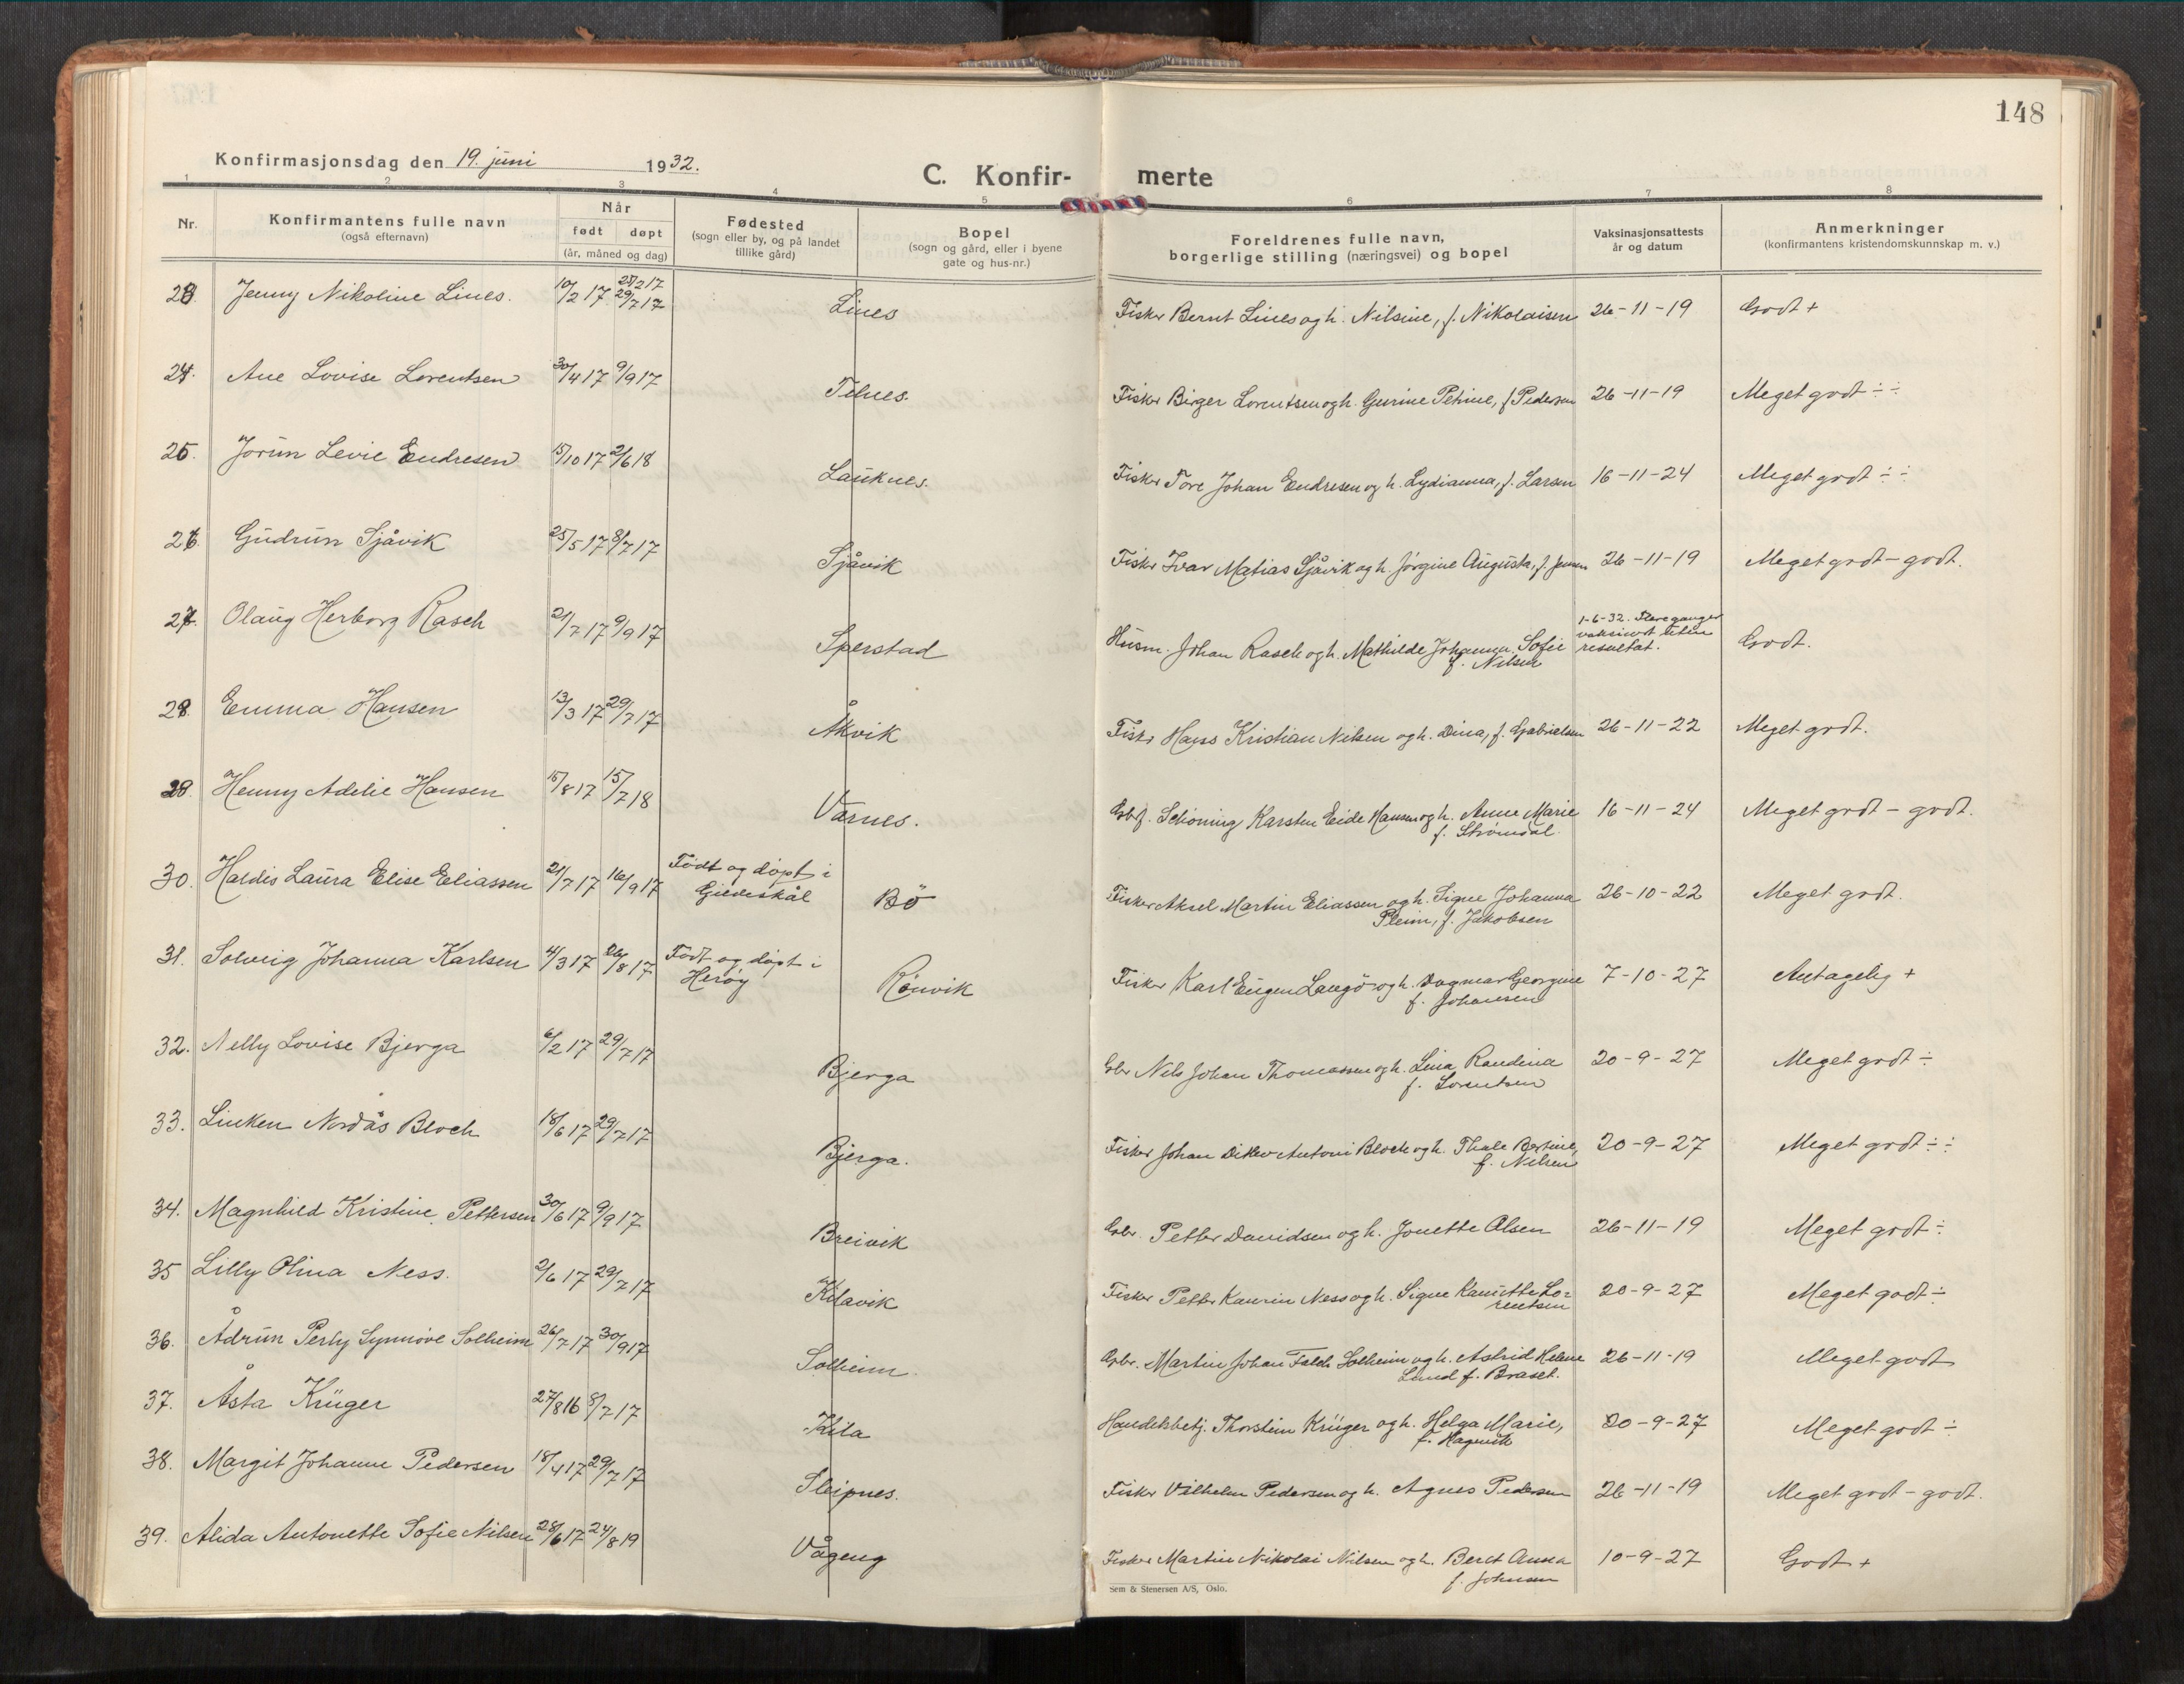 148
Konfirmasjonsdag den 19. juni 1932.
C. Konfir- merte
1 2 3 4 5 6 7 8
Nr.
Konfirmantens fulle navn
(også efternavn)
Når
født døpt
(år, måned og dag)
Fødested
(sogn eller by, og på landet
tillike gård)
Bopel
(sogn og gård, eller i byene
gate og hus-nr.)
Foreldrenes fulle navn,
borgerlige stilling (næringsvei) og bopel
Vaksinasjonsattests
år og datum
Anmerkninger
(konfirmantens kristendomskunnskap m. v.)
23. Jenny Nikoline Lines. 10/2 17 29/7 17 Lines Fisker Bernt Lines og h. Nilsine, f. Nikolaisen 26-11-19 Godt +
24. Ane Lovise Lorentsen 30/4 17 9/9 17 Telnes. Fisker Birger Lorentsen og h. Gurine Petrine, f. Pedersen 26-11-19 Meget godt ÷ ÷
25. Jorun Levie Endresen 15/10 17 2/6 18 Lauknes. Fisker Tore Johan Endresen og h. Lydianna, f. Larsen 16-11-24 Meget godt ÷ ÷
26. Gudrun Sjåvik 25/5 17 8/7 17 Sjåvik Fisker Ivar Matias Sjåvik og h. Jørgine Augusta, f. Jensen 26-11-19 Meget godt - godt.
27. Olaug Herborg Rasch 21/7 17 9/9 17 Sperstad Husm. Johan Rasch og h. Mathilde Johanna Sofie
f. Nilsen
1-6-32. Flere ganger
vaksinert uten
resultat.
Godt.
28. Emma Hansen 13/3 17 29/7 17 Åkvik Fisker Hans Kristian Nilsen og h. Dina, f. Gabrielsen 26-11-22 Meget godt.
29. Henny Adelie Hansen 15/8 17 15/7 18 Värnes. Gbf. Schöning Karsten Eide Hansen og h. Anne Marie 16-11-24 Meget godt - godt.
f. Strømdal.
30. Haldis Laura Elise Eliassen 21/7 17 16/9 17 Født og døpt i
Gildeskål Bö Fisker Aksel Martin Eliassen og h. Signe Johanna 26-10-22 Meget godt.
Pleim, f. Jakobsen
31. Solveig Johanna Karlsen 4/3 17 26/8 17 Født og døpt i
Herøy Rönvik Fisker Karl Eugen Langö og h. Dagmar Georgine 7-10-27 Antagelig +
f. Johansen
32. Nelly Lovise Bjerga 6/2 17 29/7 17 Bjerga Gbr Nils Johan Thomassen og h. Lina Randina 20-9-27 Meget godt ÷
f. Lorentsen
33. Linken Nordås Bloch 18/6 17 29/7 17 Bjerga. Fisker Johan Ditlev Antoni Bloch og h. Thale Bertine, 20-9-27 Meget godt ÷ ÷
f. Nilsen
34. Magnhild Kristine Pettersen 30/6 17 9/9 17 Breivik Gbr. Petter Davidsen og h. Jonette Olsen 26-11-19 Meget godt ÷
35 Lilly Olina Ness. 2/6 17 29/7 17 Kilavik Fisker Petter Kaurin Ness og h. Signe Kanutte Lo= 20-9-27 Meget godt ÷
rentsen
36. Ådrun Perly Synnöve Solheim 26/7 17 30/9 17 Solheim. Gbr. Martin Johan Falch Solheim og h. Astrid Helene 26-11-19 Meget godt
Lund f. Braset.
37. Åsta Krüger 27/8 16 8/7 17 Kila Handelsbetj. Thorstein Krüger og h. Helga Marie, 20-9-27 Meget godt ÷
f. Hagevik
38. Margit Johanne Pedersen 18/4 17 29/7 17 Sleipnes. Fisker Vilhelm Pedersen og h. Agnes Pedersen 26-11-19 Meget godt - godt.
39. Alida Antonette Sofie Nilsen 28/6 17 24/8 19 Vågeng Fisker Martin Nikolai Nilsen og h. Beret Anna 10-9-27 Godt +
f. Johnsen
Sem & Stenersen A/S, Oslo.